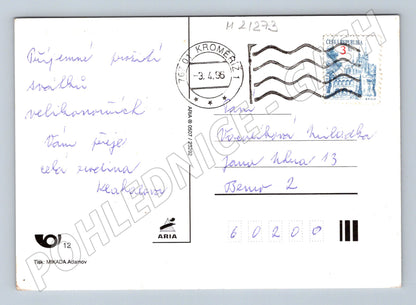 M 21273
Příjemné prožití
svátků
velikonočních
Vám přeje
celá rodina
767 01 KROMĚŘÍŽ 1
-3.4.96
ČESKÁ REPUBLIKA
3
Vážená
Miladka
Jana Uhra 13
Brno 2
60200
ARIA
12
Tisk: MIKADA Adamov
POHLEDNICE - CZECH